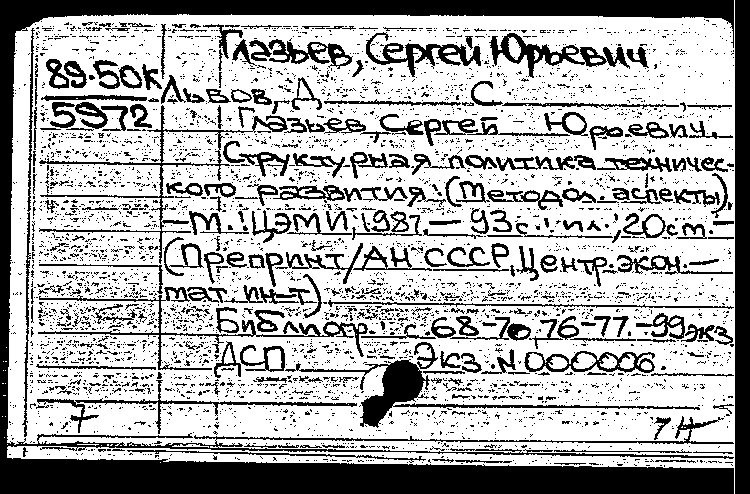 Глазьев, Сергей Юрьевич.
89-50К
5972
Львов, Д. С.,
Глазьев, Сергей Юрьевич.
Структурная политика техничес-
кого развития: (Методол. аспекты).
—М.: ЦЭМИ, 1987.— 93с.: ил.; 20см.—
(Препринт/АН СССР, Центр. экон.—
мат. ин-т).
Библиогр.: с. 68-70, 76-77.—99экз
ДСП. Экз. N 000006.
7 7Н